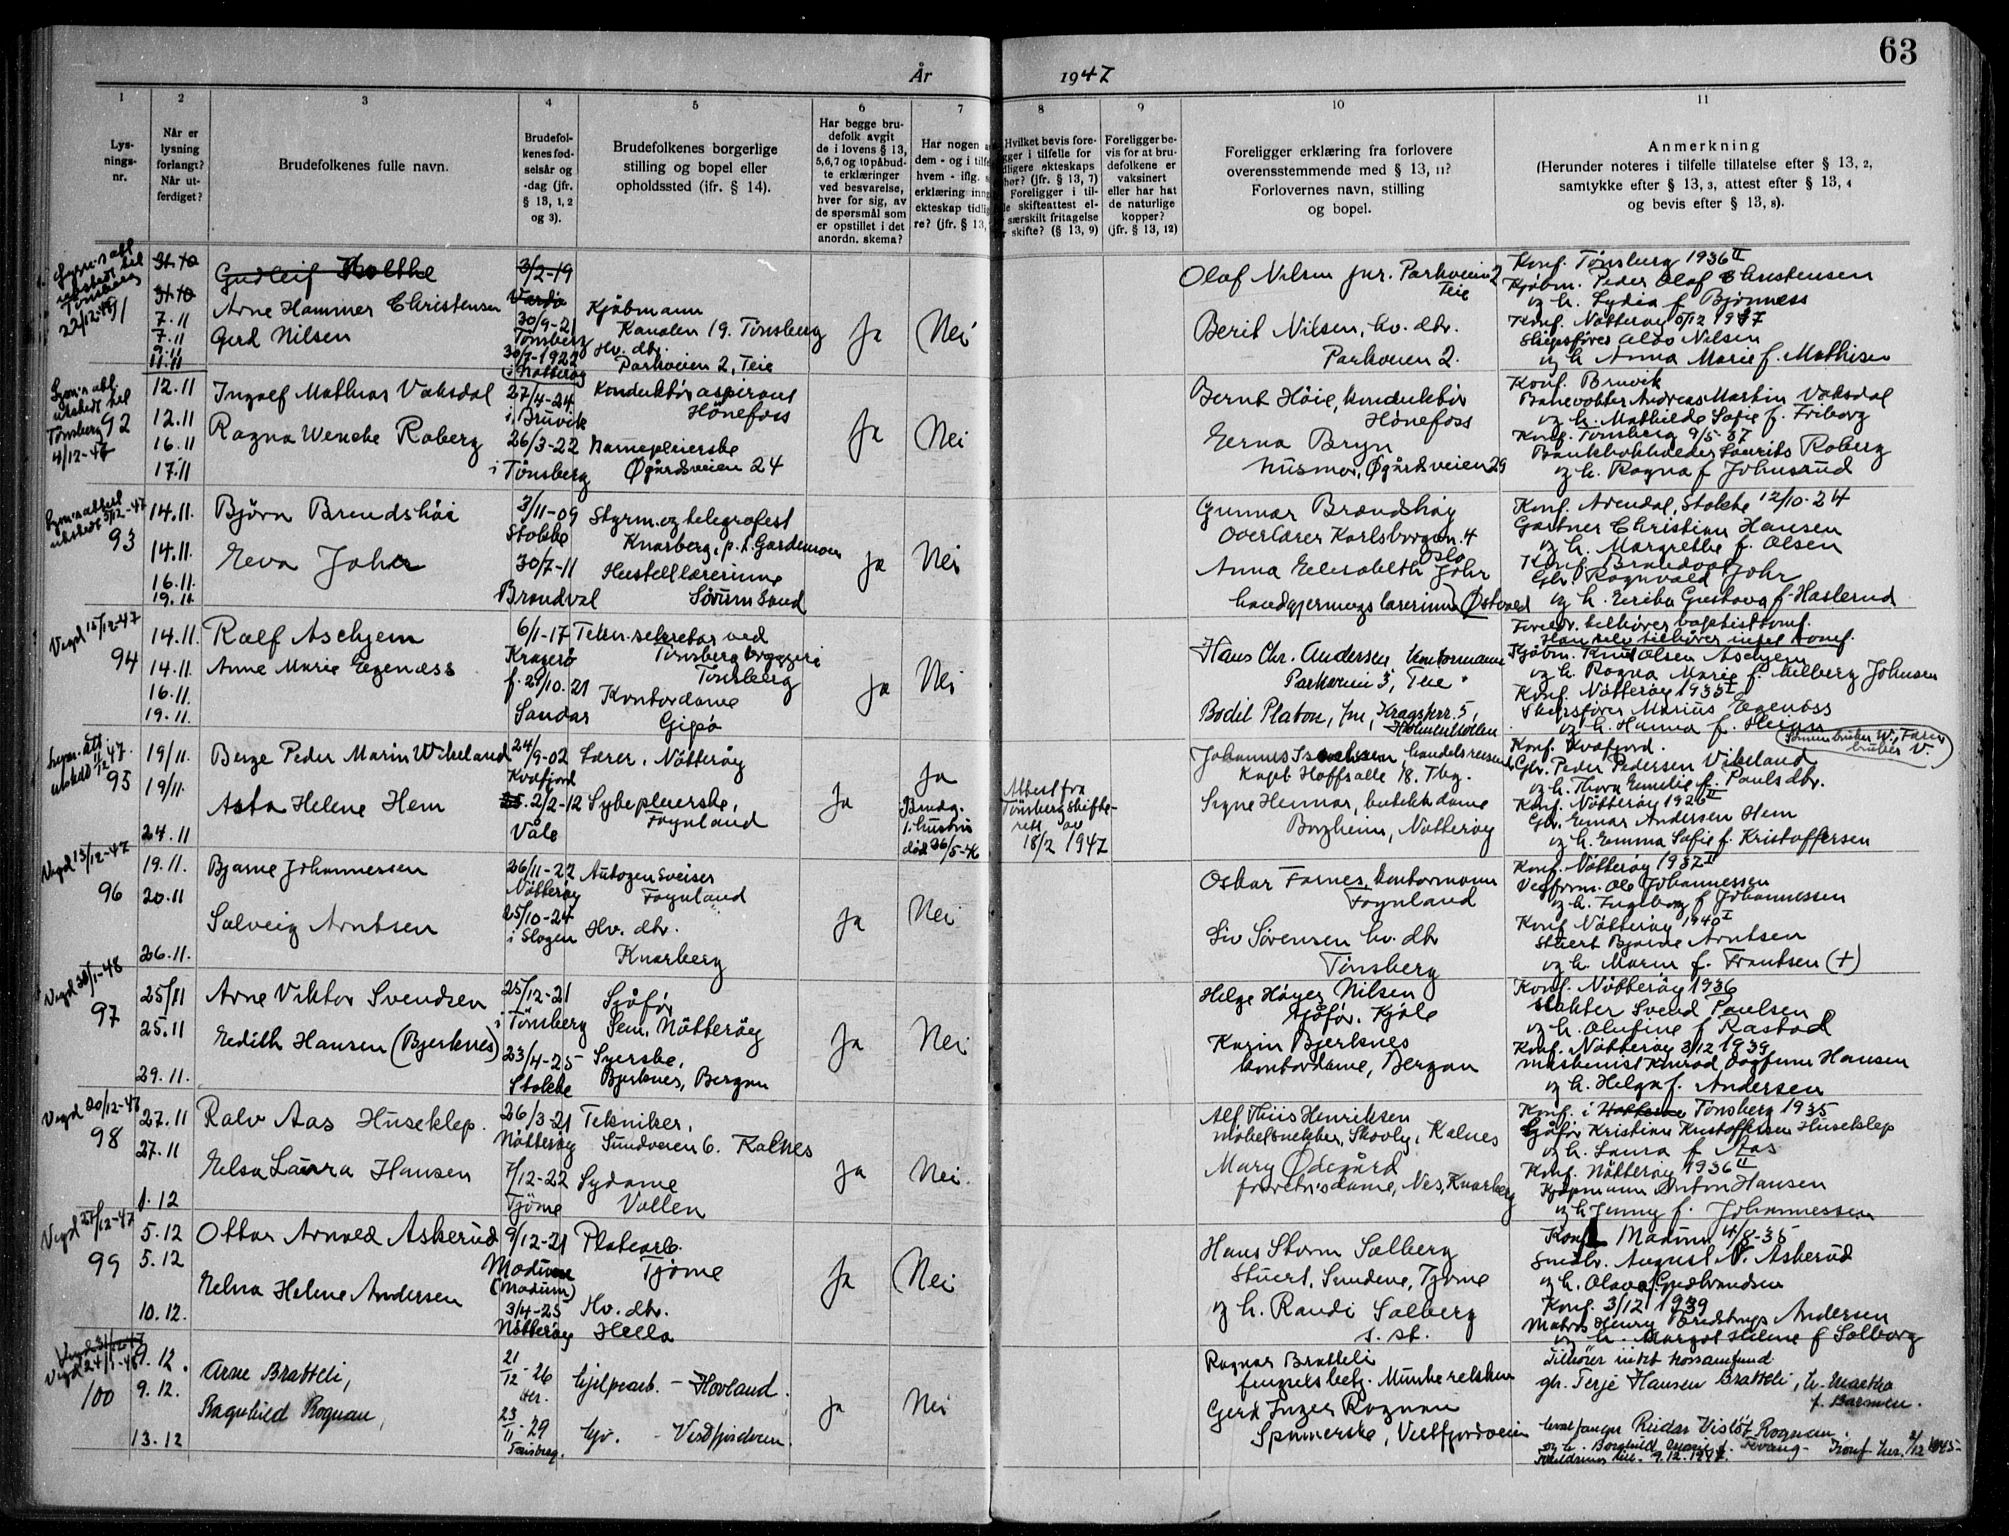 63
År 1947
1
2
3
4
5
6
7
8
9
10
11
Lys-
nings-
nr.
Når er
lysning
forlangt?
Når ut-
ferdiget?
Brudefolkenes fulle navn.
Brudefol-
kenes fød-
selsår og
-dag (jfr.
§ 13, 1, 2
og 3).
Brudefolkenes borgerlige
stilling og bopel eller
opholdssted (ifr. § 14).
Har begge bru-
defolk avgit
de i lovens § 13,
5,6,7 og 10 påbud-
te erklæringer
ved besvarelse,
hver for sig, av
de spørsmål som
er opstillet i det
anordn. skema?
Har nogen
dem - og i tilfe
hvem - iflg.
erklæring inng
ekteskap tidlig
re? (jfr. § 13,
Hvilket bevis fore-
gger i tilfelle for
dligere ekteskaps
hør? (jfr. § 13, 7)
Foreligger i til-
le skifteattest el-
særskilt fritagelse
r skifte? (§ 13, 9)
Foreligger be-
vis for at bru-
defolkene er
vaksinert
eller har hat
de naturlige
kopper?
(jfr. § 13, 12)
Foreligger erklæring fra forlovere
overensstemmende med § 13, 11?
Forlovernes navn, stilling
og bopel.
Anmerkning
(Herunder noteres i tilfelle tillatelse efter § 13, 2,
samtykke efter § 13, 3, attest efter § 13, 4
og bevis efter § 13, 8).
22/12-47
91
31.10
31.10
7.11
7.11
9.11
11.11
Gudleif Holthe
Arne Hammer Christensen
Gerd Nilsen
3/2-19
Vardø
30/9-21
Tønsberg
30/7-1922
i Nøtterøy
Kjøbmann
Kanalen 19. Tønsberg
Hv. dtr.
Parkveien 2, Teie
Ja
Nei
Olaf Nilsen jnr. Parkveien 2
Teie
Berit Nilsen, hv. dtr.
Parkveien 2.
Konf. Tønsberg 1936 II
Kjøbm. Peder Olaf Christensen
og h. Lydia f. Bjønness
Konf. Nøtterøy 5/12 1937
Skipsfører Aldo Nilsen
og h. Anna Marie f. Mathisen
Lysn.s att.
utstedt til
Tønsberg
4/12-47
92
12.11
12.11
16.11
17.11
Ingolf Mathias Vaksdal
Ragna Wenche Roberg
27/4-24
i Bruvik
26/3-22
i Tønsberg
Konduktør aspirant
Hønefoss
Barnepleierske
Øgårdsveien 24
Ja
Nei
Bernt Høie, konduktør
Hønefoss
Erna Bryn
husmor, Øgårdsveien 29
Konf. Bruvik
Banevokter Andreas Martin Vaksdal
og h. Mathilde Sofie f. Friborg
Konf. Tønsberg 9/5-37
Bankbokholder Laurits Roberg
og h. Ragna f. Johnsrud
93
14.11.
14.11.
16.11.
19.11
Bjørn Brendshøi
Eva Johr
3/11-09
Stokke
30/7-11
Brandval
Styrm. og telegrafist
Knarberg, p.t. Gardemoen
Husstellærerinne
Sørumsand
Ja
Nei
Gunnar Brændshøy
Overlærer Karlsborgvn. 4
Oslo
Anna Elisabeth Johr
handgjerningslærerinne, Østvold
Konf. Arendal, Stokke 12/10-24
Gartner Christian Hansen
og h. Margrethe f. Olsen
Konf. Brandval
Gbr. Ragnvald Johr
og h. Erika Gustava f. Haslerud
Vigd 15/12-47
94
14.11.
14.11.
16.11.
19.11.
Ralf Aschjem
Anne Marie Egenæss
6/1-17
Kragerø
f. 29/10.21
Sandar
Tekn. sekretær ved
Tønsberg bryggeri
Tønsberg
Kontordame
Gipø
Ja
Nei
Hans Chr. Andersen, kontormann
Parkveien 3, Teie
Bodil Platou, fru, Kragskrr. 5,
Holmenkollen
Foreldr. tilhører baptistsamf.
Han selv tilhører intet samf.
Kjøbm. Knut Olsen Aschjem
og h. Ragna Marie f. Milberg Johnsen
Konf. Nøtterøy 1935 I
Skipsfører Marius Egenæss
og h. Hanna f.
95
19/11.
19/11.
24.11
Berge Peder Marin Wikeland
Asta Helene Hem
24/9-02
Kvæfjord
2/2-12
Våle
Lærer, Nøtterøy
Sykepleierske,
Føynland
Ja
Ja
Brudg.
1. hustru
død 26/5-46
Attest fra
Tønsberg skifte-
rett av
18/2 1947
Johannes Isachsen, handelsreisende
Kapt. Hoffs alle 18. Tbg.
Signe Heimar, butikkdame
Borgheim, Nøtterøy
(Sønnen bruker W, Faren
bruker V.)
Konf. Kvæfjord.
Gbr. Peder Pedersen Vikeland
og h. Thora Emelie f. Paulsdtr.
Konf. Nøtterøy 1926 II
Gbr. Einar Andersen Hem
og h. Emma Sofie f. Kristoffersen
Vigd 13/12-47
96
19.11.
20.11
26.11.
Bjarne Johannessen
Solveig Arntsen
26/11-22
Nøtterøy
25/10-24
i Slagen
Autogensveiser
Føynland
Hv. dtr.
Knarberg
Ja
Nei
Oskar Farnes, kontormann
Føynland
Liv Sørensen hv. dtr
Tønsberg
Konf. Nøtterøy 1937 II
Veiform. Ole Johannessen
og h. Ingeborg f. Johannessen
Konf. Nøtterøy 1940 I
Stuert Bjarne Arntsen
og h. Marie f. Frantsen (+)
97
25/11
25.11
29.11.
Arne Viktor Svendsen
Edith Hansen (Bjerknes)
25/12-21
i Tønsberg
23/4-25
Stokke
Sjåfør
Sem, Nøtterøy
Syerske,
Bjerknes, Bergan
Ja
Nei
Helge Høyer Nilsen
sjåfør. Kjøle
Karin Bjerknes
kontordame, Bergan
Konf. Nøtterøy 1936
slakter Svend Paulsen
og h. Olufine f. Rastad
Konf. Nøtterøy 3/12 1939
Maskinist Konrad Dagfinn Hansen
og h. Helga f. Andersen
Vigd 20/12-47
98
27.11
27.11
1.12
Ralv Aas Huseklep.
Elsa Laura Hansen
26/3-21
Nøtterøy
7/12-22
Tjøme
Tekniker,
Sundveien 6. Kalnes
Sydame
Vollen
Ja
Nei.
Alf Thiis Henriksen
møbelsnekker, Skovly, Kalnes
Mary Ødegård
forretn'sdame, Nes, Knarberg
Konf. i Tønsberg 1935
Sjåfør Kristian Kristoffersen Huseklep
og h. Laura f. Aas
Konf. Nøtterøy 1936 II
Kjøpmann Anton Hansen
og h. Jenny f. Johannessen
Vigd 27/12-47
99
5.12
5.12
10.12.
Ottar Arnold Askerud
Elna Helene Andersen
9/12-21
Modum
(Modum)
3/4-25
Nøtterøy
Platearb.
Tjøme
Hv. dtr.
Hella
Ja
Nei
Hans Storm Solberg
Stuert, Sundene, Tjøme
og h. Randi Solberg
s. st.
Konf. Modum 4/8-35
Snedkr. August N. Askerud
og h. Olava Gudbrandsen
Konf. 3/12 1939
Matros Henry Andersen
og h. Margot Helene f. Solberg
Vigd 31/12-47
Vigd 24/1-48
100
9.12.
9.12.
13.12
Arne Bratteli,
Ragnhild Rognan,
21/12-26
her.
23/11-29
Tønsberg.
hjelpearb. - Hovland.
hjv. - Vestfjordveien.
ja
Nei
Ragnar Bratteli
fengselsbetj. Munkerekkern
Gerd Inger Rognan
Spinnerske, Vestfjordveien
Tilhører intet trossamfund
gb. Terje Hansen Bratteli, h. Martha
f. Baemen.
hvalfanger Reidar Rognan.
og h. Borghild Marie f. Fevang - Konf her. 2/12 1945-
till. 9.12.1947.